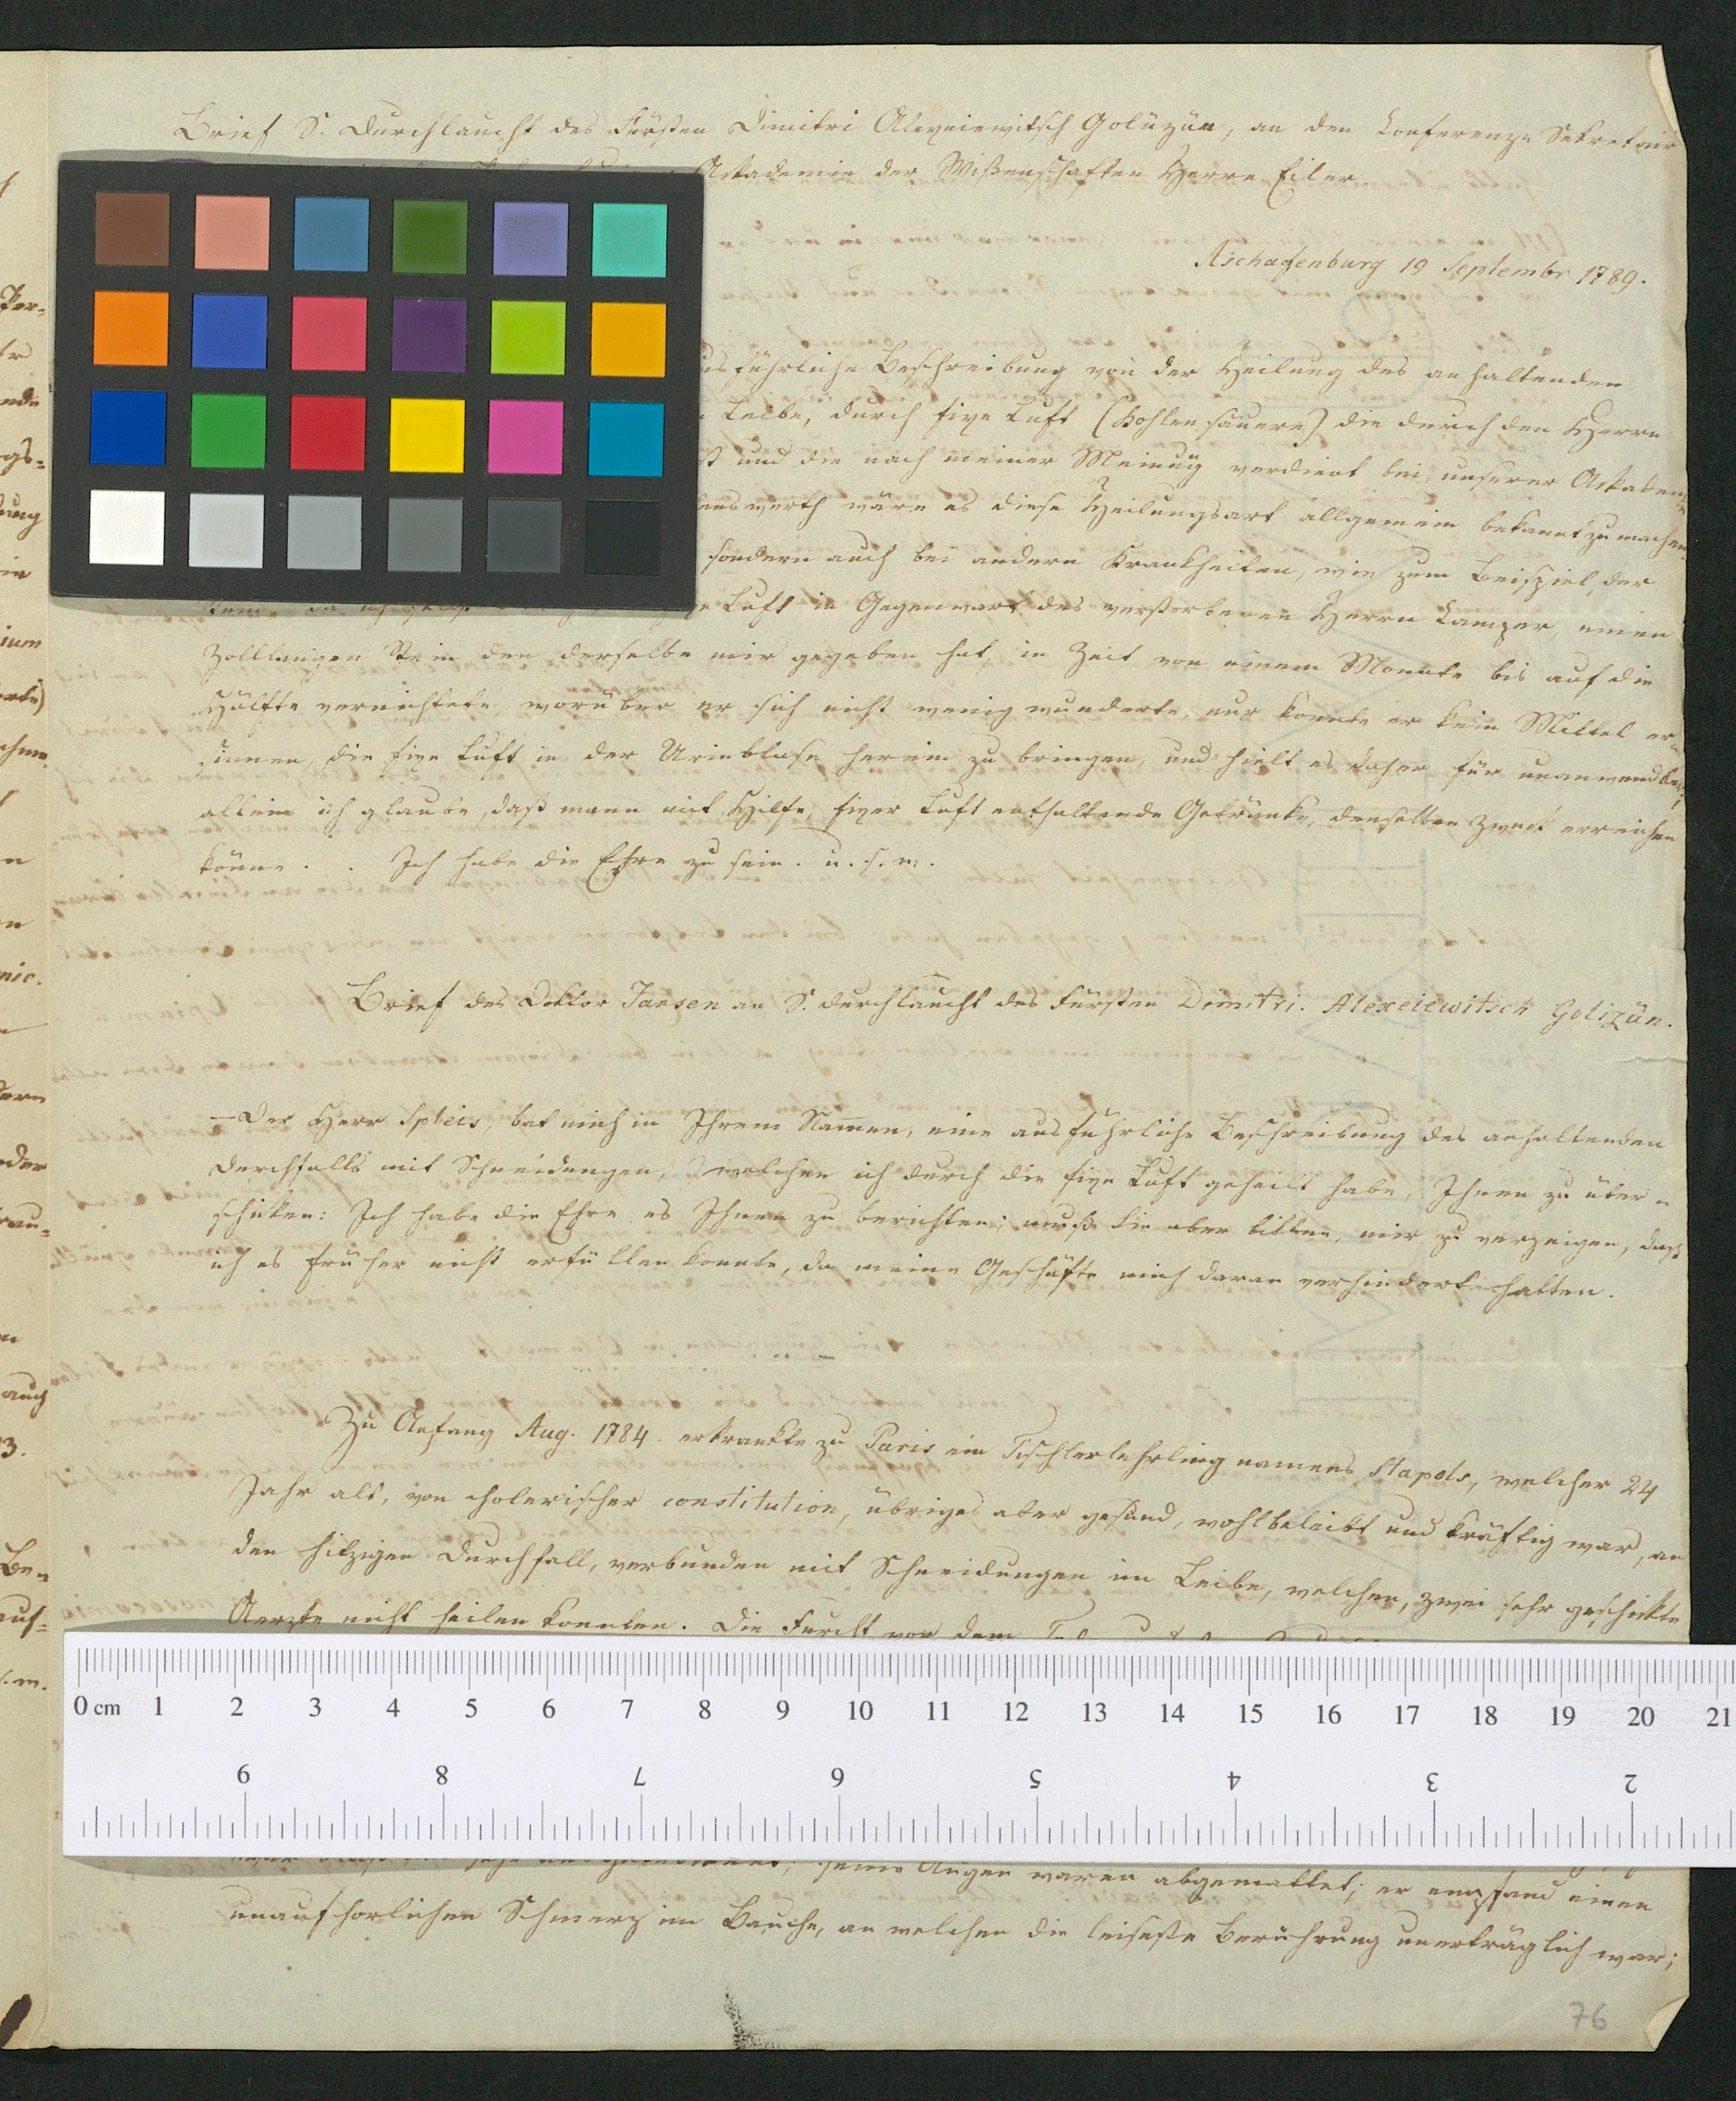 Brief S. Durchlaucht des Fürsten Dimitri Alexeiewitsch Golüzün, an den Conferenz-Sekretair
Akademie der Wißenschaften Herrn Eiler.
Aschaffenburg 19 Septembr 1789.
usführliche Beschreibung von der Heilung des anhaltenden
Leibe, durch fixe Luft (Kohlensäuere) die durch den Herrn
und die nach meiner Meinung verdient bei unserer Akademie
enswerth wäre es diese Heilungsart allgemein bekannt zu machen
sondern auch bei andern Krankheiten, wie zum Beispiel, der
Luft in Gegenwart des verstorbenen Herrn Camper, einen
Zolllangen Stein den derselbe mir gegeben hat, in Zeit von einem Monate bis auf die
Hälfte vernichtete, worüber er sich nicht wenig wunderte, nur konnte er kein Mittel er-
sinnen, die fixe Luft in der Urinblase herein zu bringen, und hielt es daher für unanwendbar,
allein ich glaube, daß mann mit Hilfe, fixer Luft enthaltende Getränke, denselben Zweck erreichen
könne. . Ich habe die Ehre zu sein. u. s. w.
Brief des Doktor Jansen an S. Durchlaucht des Fürsten Dimitri. Alexeiewitsch Golizün.
—Der Herr Spleis, bat mich in Ihrem Namen, eine ausführliche Beschreibung des anhaltenden
Durchfalls mit Schneidungen, welchen ich durch die fixe Luft geheilt habe, Ihnen zu über-
schicken: Ich habe die Ehre es Ihnen zu berichten; muß Sie aber bitten, mir zu verzeigen, daß
ich es früher nicht erfüllen konnte, da meine Geschäfte mich daran verhindert hatten.
Zu Anfang Aug. 1784. erkrankte zu Paris ein Tischlerlehrling namens Stapols, welcher 24
Jahr alt, von cholerischer constitution, übriges aber gesund, wohlbeleibt und kräftig war, an
den hitzigen Durchfall, verbunden mit Schneidungen im Leibe, welchen, zwei sehr geschickte
Aerzte nicht heilen konnten. Die Furcht vor dem
seine Augen waren abgemattet; er empfand einen
unaufhorlichen Schmerz im Bauche, an welchen die leiseste Berührung unerträglich war;
76
0 cm 1 2 3 4 5 6 7 8 9 10 11 12 13 14 15 16 17 18 19 20 21
9 8 7 6 5 4 3 2